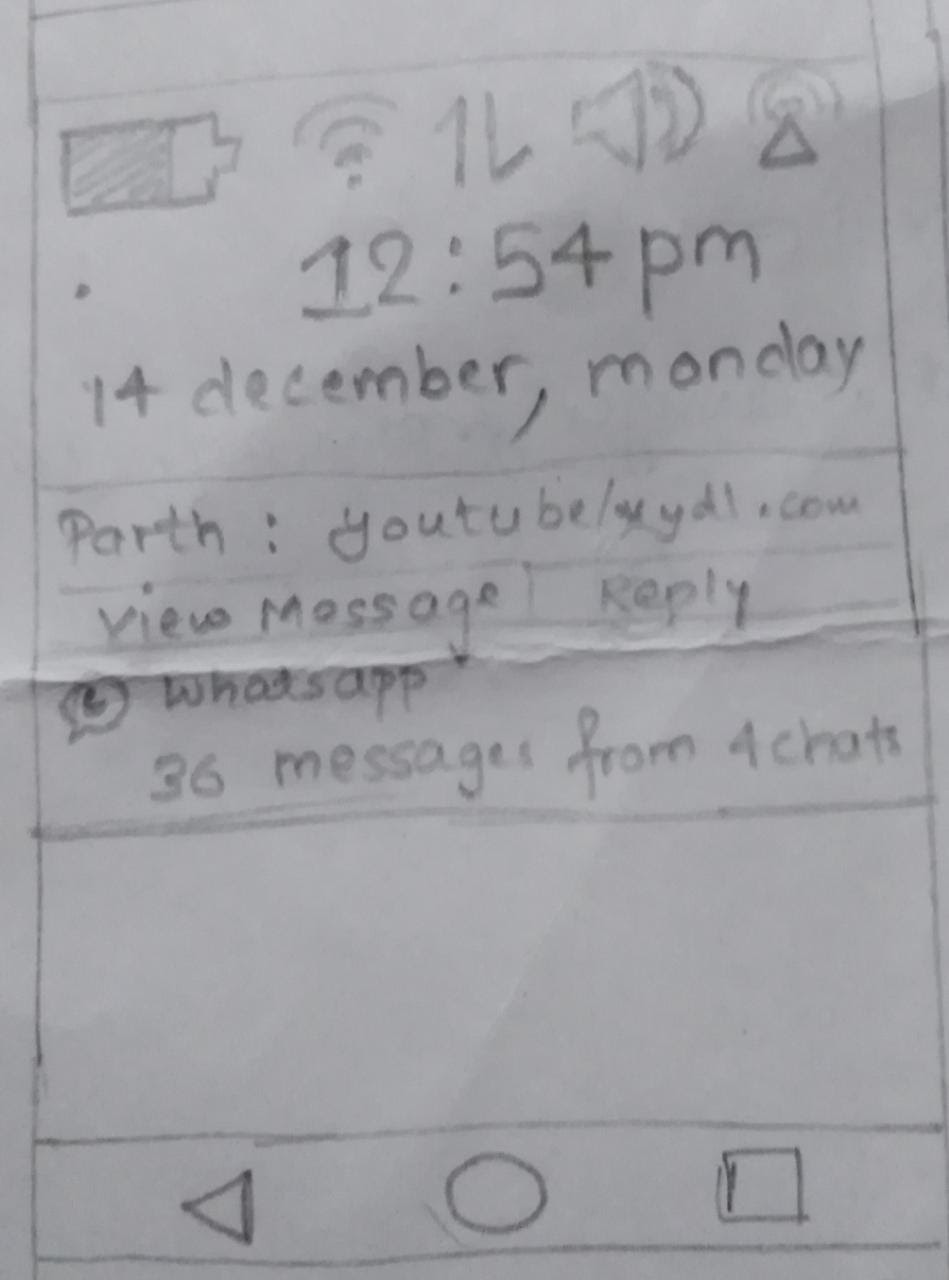 12:54 pm
14 december, monday
Parth : youtube/xydl.com
View Message Reply
Whatsapp
36 messages from 4 chats